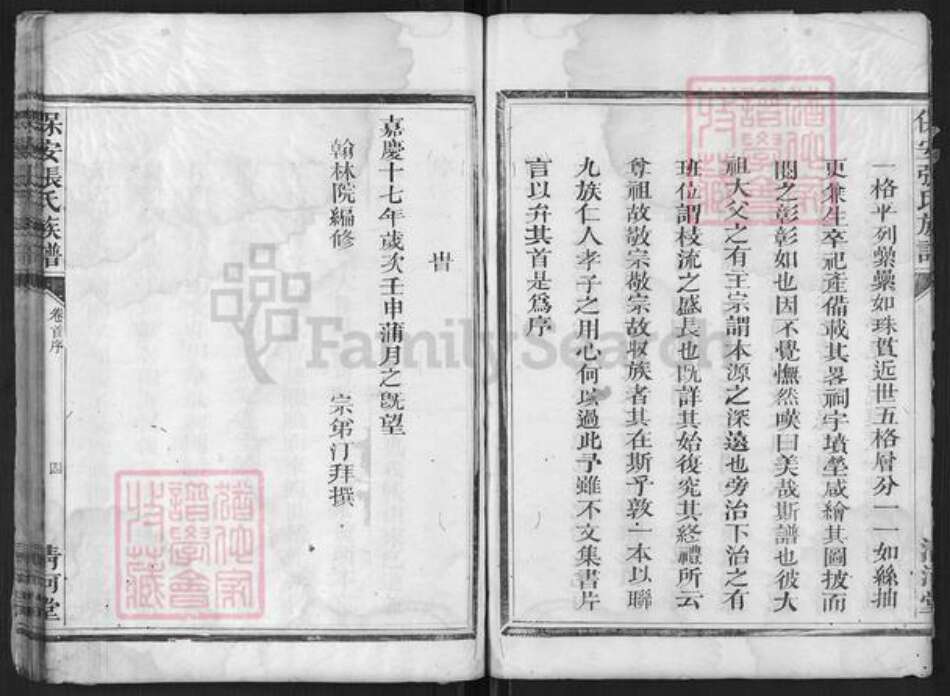 一格平列纍纍如珠貫近世五格層分一一如絲抽
更兼生卒祀產備載其畧祠宇墳塋咸繪其圖披而
閱之彰彰如也因不覺憮然嘆曰美哉斯譜也彼大
祖大父之有主宗謂本源之深遠也旁治下治之有
班位謂枝流之盛長也旣詳其始復究其終禮所云
尊祖故敬宗敬宗故収族者其在斯乎敦一本以聯
九族仁人孝子之用心何以過此予雖不文集書片
言以弁其首是爲序
旹
嘉慶十七年歲次壬申蒲月之旣望
翰林院編修　宗弟汀拜撰
保安張氏族譜
卷首序
四
清河堂
FamilySearch